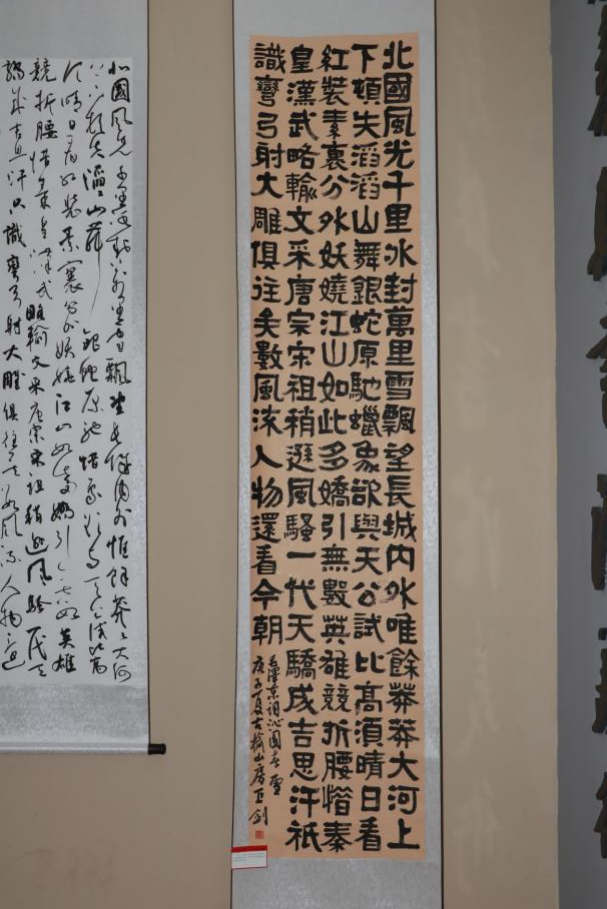 北國風光千里冰封萬里雪飄望長城内外唯餘莽莽大河上
下頓失滔滔山舞銀蛇原馳蠟象欲與天公試比高須晴日看
紅裝素裹分外妖嬈江山如此多嬌引無數英雄競折腰惜秦
皇漢武略輸文采唐宗宋祖稍遜風騷一代天驕成吉思汗祇
識彎弓射大雕俱往矣數風流人物還看今朝
毛澤東詞沁園春雪
庚子夏古榆山房巨剑
北國風光千里冰封萬里雪飄望長城内外惟餘莽〻大河
上下頓失滔〻山舞銀蛇原馳蠟象欲與天公試比高
須晴日看紅裝素裹分外妖嬈江山如此多嬌引無數英雄
競折腰惜秦皇漢武略輸文采唐宗宋祖稍遜風騷一代天
驕成吉思汗只識彎弓射大雕俱往矣數風流人物還